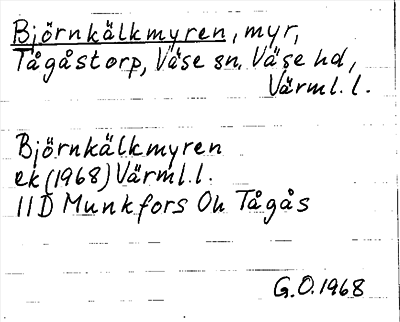 Björnkälkmyren, myr,
Tågåstorp, Väse sn. Väse hd,
Värml. l.
Björnkälkmyren
ek (1968) Värml. l.
11D Munkfors Oh Tågås
G.O. 1968